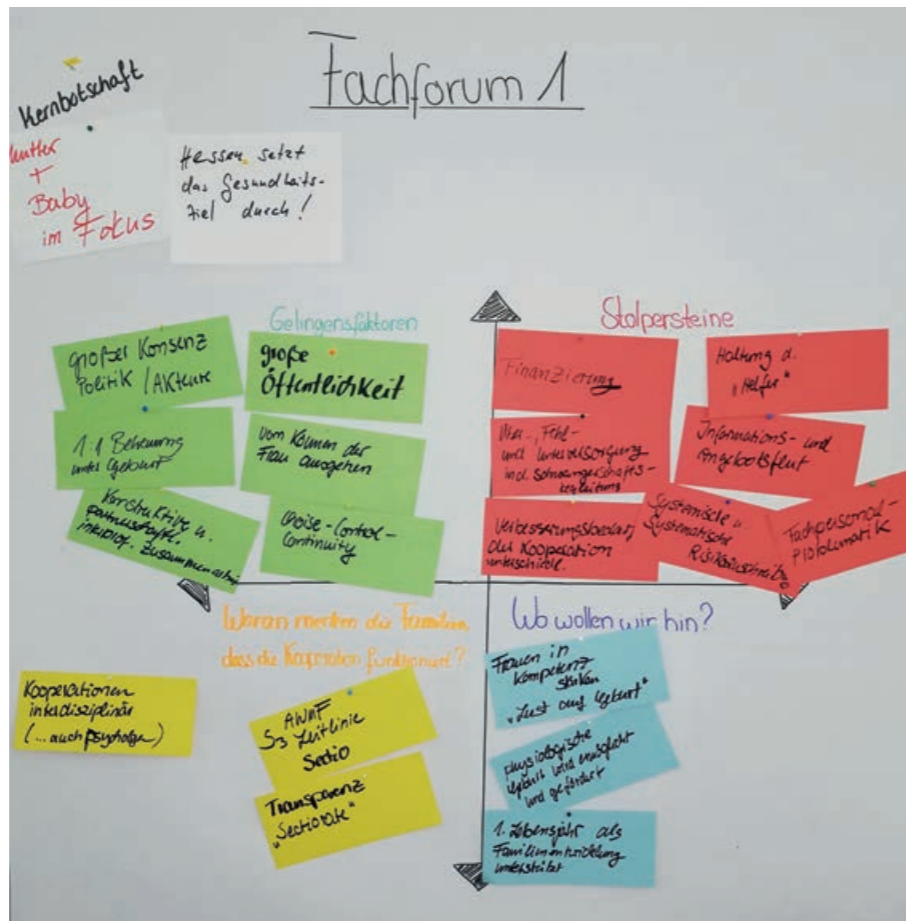 Fachforum 1
Kernbotschaft
Mutter
+
Baby
im Fokus
Hessen setzt
das Gesundheits-
ziel durch!
Gelingensfaktoren
großer Konsenz
Politik / Akteure
große
Öffentlichkeit
1:1 Betreuung
unter Geburt
vom Können der
Frau ausgehen
Konstruktive u.
partnerschaftl.
interprof. Zusammenarbeit
Choise-Control-
Continuity
Stolpersteine
Finanzierung
Haltung d.
„Helfer“
Über-, Fehl-
und Unterversorgung
incl. Schwangerschafts-
begleitung
Informations- und
Angebotsflut
Verbesserungsbedarf
der Kooperation
unterschiedl.
Systemische u.
Systematische
Risikozuschreib.
Fachpersonal-
Problematik
Woran merken die Familien,
dass die Kooperation funktioniert?
Kooperationen
interdisziplinär
(... auch psycholgen)
AWMF
S3 Leitlinie
Sectio
Transparenz
„Sectiorate“
Wo wollen wir hin?
Frauen in
Kompetenz
stärken
„Lust auf Geburt“
physiologische
Geburt wird ermöglicht
und gefördert
1. Lebensjahr als
Familienentwicklung
unterstützt